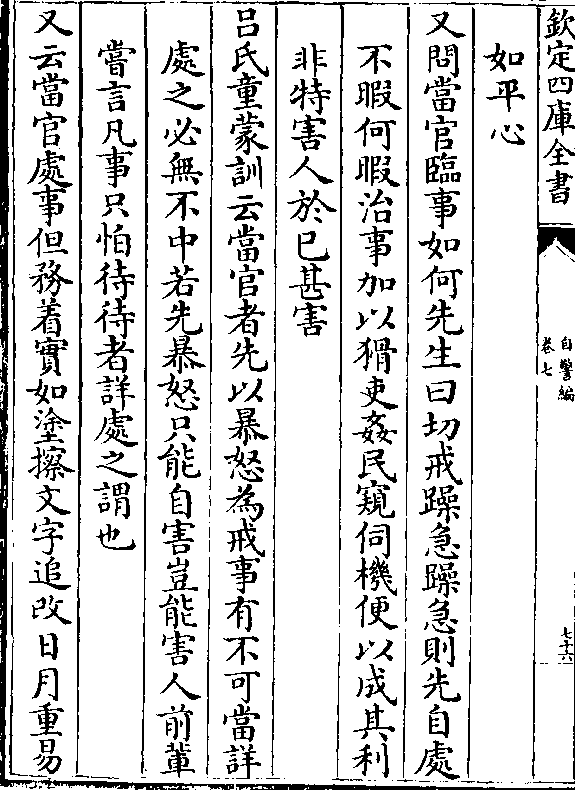 欽定四庫全書
自警編
卷七
七十六
如平心
又問當官臨事如何先生曰切戒躁急躁急則先自處
不暇何暇治事加以猾吏姦民窺伺機便以成其利
非特害人於已甚害
吕氏童蒙訓云當官者先以暴怒為戒事有不可當詳
處之必無不中若先暴怒只能自害豈能害人前輩
嘗言凡事只怕待待者詳處之謂也
又云當官處事但務着實如塗擦文字追改日月重易